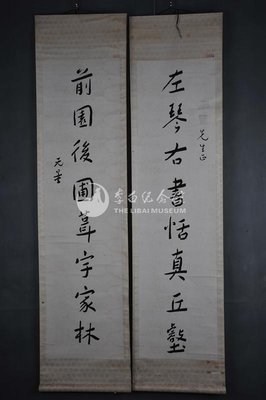 左琴右書恬真丘壑
先生正
前園後圃葺宇家林
元量
李白纪念馆
THE LIBAI MUSEUM